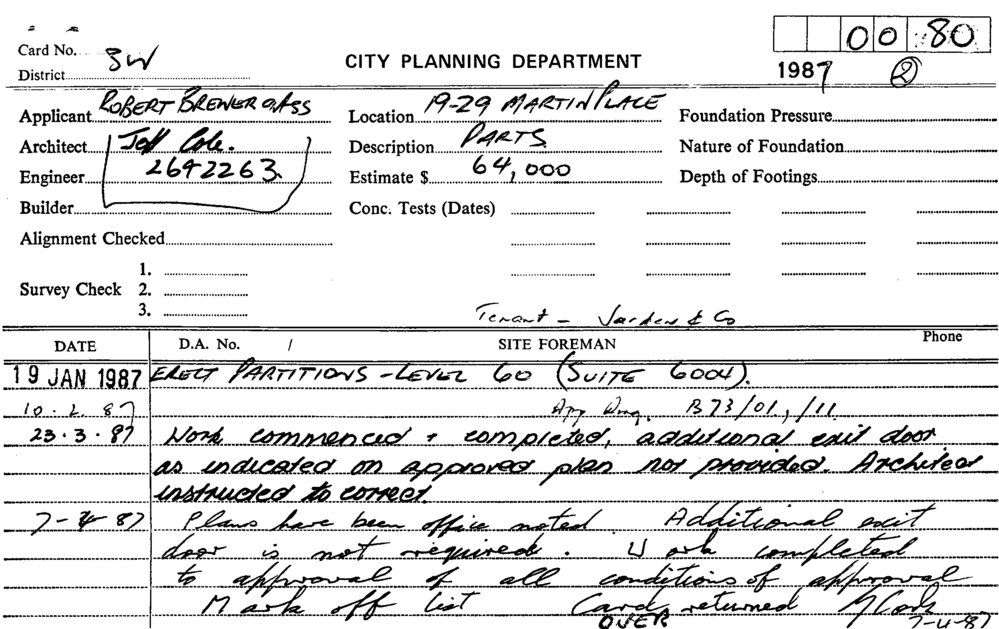 00 80
Card No. 3W
District
CITY PLANNING DEPARTMENT
1987 2
Applicant ROBERT BREWER & ASS
Location 19-29 MARTIN PLACE
Foundation Pressure
Architect Jeff Cole.
Description PARTS
Nature of Foundation
Engineer 2642263.
Estimate $ 64,000
Depth of Footings
Builder
Conc. Tests (Dates)
Alignment Checked
1.
Survey Check 2.
3.
Tenant - Jarden & Co
DATE D.A. No. / SITE FOREMAN Phone
19 JAN 1987 ERECT PARTITIONS - LEVEL 60 (SUITE 6004).
10.2.87 App Dwg. B73/01, /11
23.3.87 Work commenced + completed, additional exit door
as indicated on approved plan not provided. Architect
instructed to correct
7-4-87 Plans have been office noted. Additional exit
door is not required. Work completed
to approval of all conditions of approval
Mark off list Card returned
OVER 7-4-87